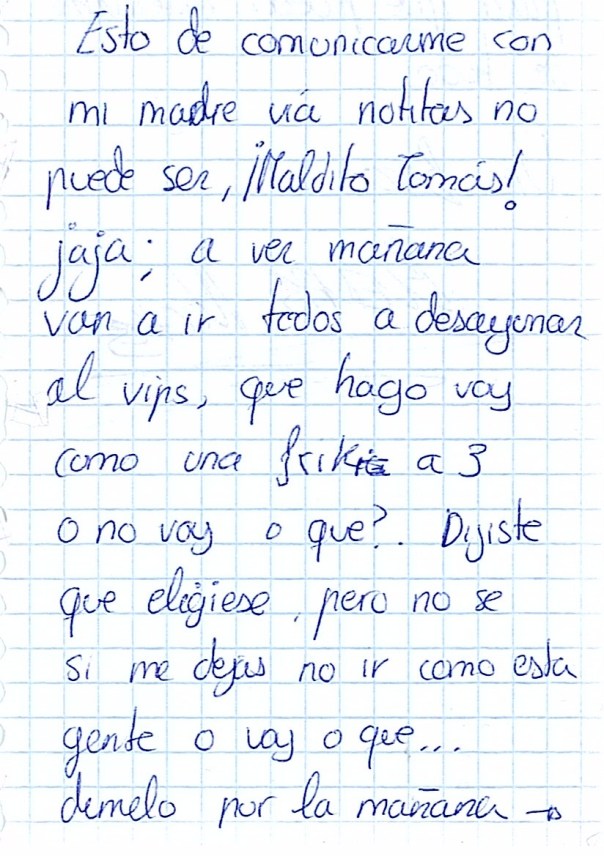 Esto de comunicarme con
mi madre vía notitas no
puede ser, ¡Maldito Tomás!
jaja; a ver mañana
van a ir todos a desayunar
al vips, que hago voy
como una friki a 3
o no voy o que?. Dijiste
que eligiese, pero no se
si me dejas no ir como esta
gente o voy o que...
dimelo por la mañana →